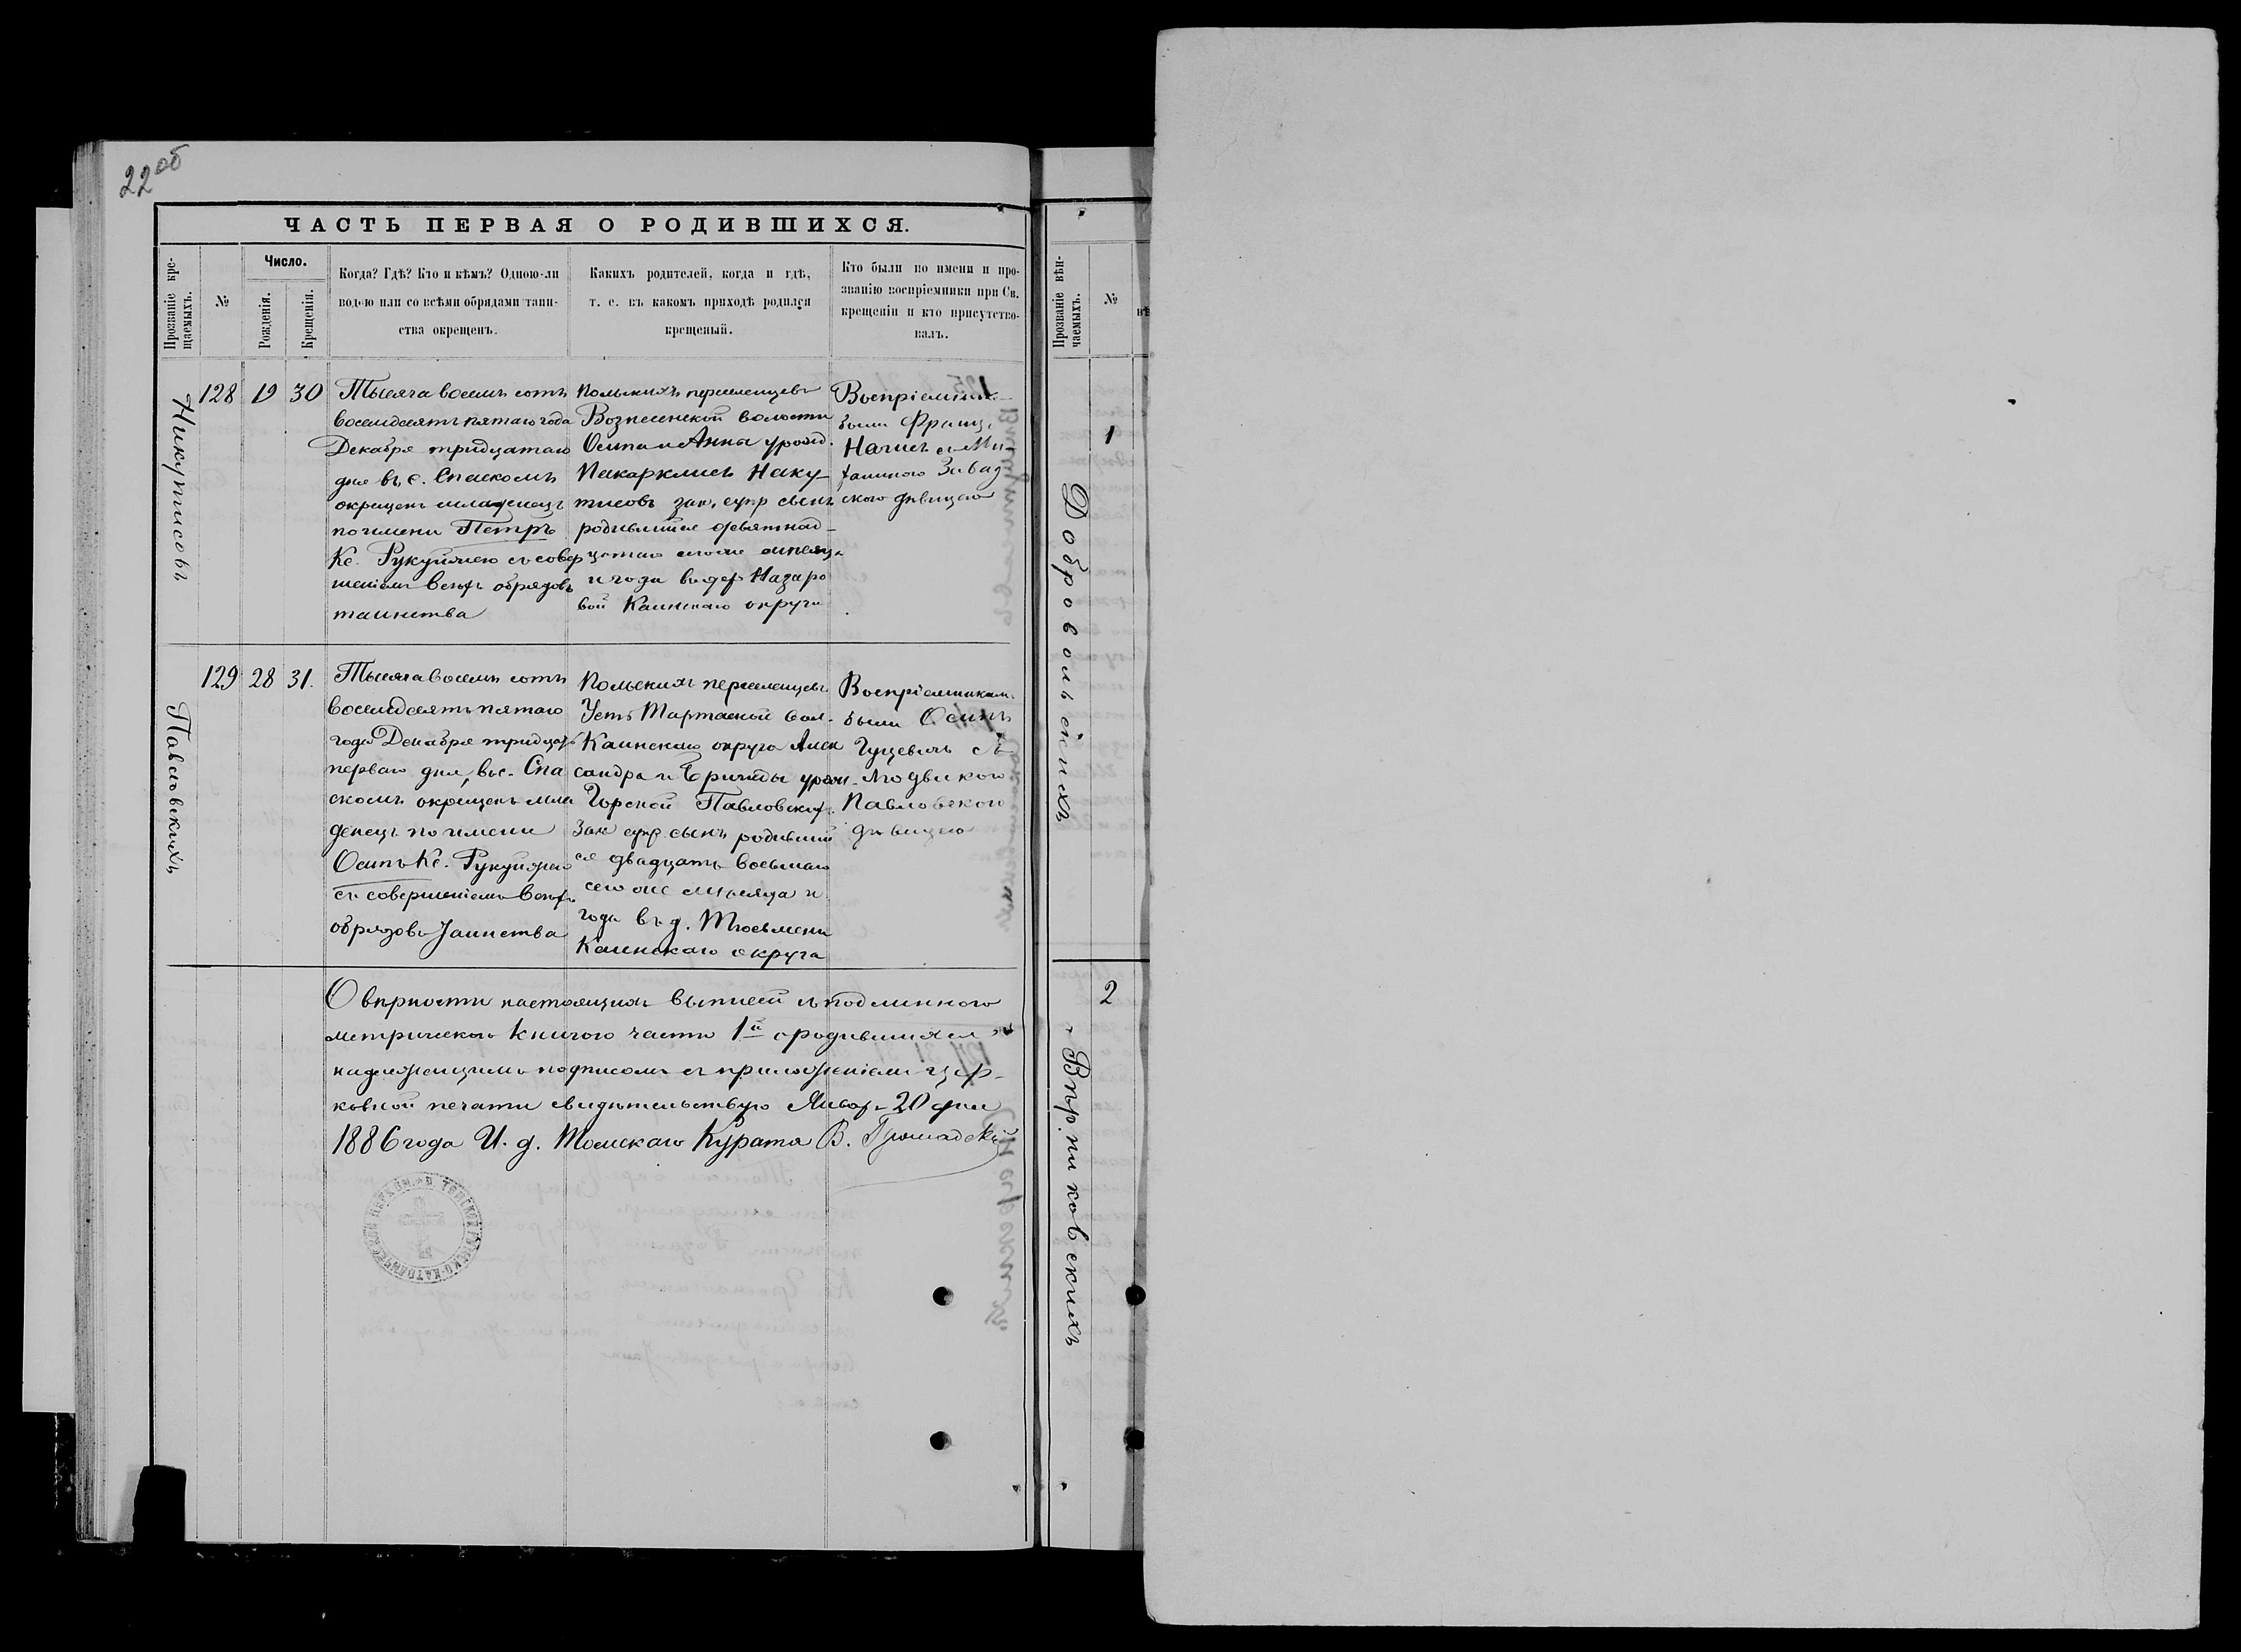 22 об
ЧАСТЬ ПЕРВАЯ О РОДИВШИХСЯ.
Прозваніе кре-
щаемыхъ.
№
Число.
Рожденія.
Крещенія.
Когда? Гдѣ? Кто и кѣмъ? Одною-ли
водою или со всѣми обрядами таин-
ства окрещенъ.
Какихъ родителей, когда и гдѣ,
т. е. въ какомъ приходѣ родился
крещеный.
Кто были по имени и про-
званію воспріемники при Св.
крещеніи и кто присутство-
валъ.
128
19
30
Тысяча восемь сотъ
восемдесятъ пятаго года
Декабря тридцатаго
дня въ с. Спаскомъ
окрещенъ младенецъ
по имени Петръ
Кс. Рукуйжею съ совер
шеніемъ всѣхъ обрядовъ
таинства
Польскихъ переселенцевъ
Вознесенской волости
Осипа и Анны урожд.
Наку-
тисовъ зак. супр сынъ
родившійся девятнад-
цатаго сего же мѣсяца
и года въ дер Назаро
вой Каинскаго округа
Воспріемник.
были Франц.
ского дѣвицею
Павловскихъ
129
28
31.
Тысяча восемь сотъ
восемдесятъ пятаго
года Декабря тридцать
перваго дня, въ с. Спа
скомъ окрещенъ мла
денецъ по имени
Осипъ Кс. Рукуйжею
съ совершеніемъ всѣхъ
обрядовъ таинства
Польскихъ переселенцевъ
Усть Тартаской вол.
Каинскаго округа Алек
сандра и Бригиды урож.
Горской Павловских.
Зак супр. сынъ родивший
ся двадцать восьмаго
сего же мѣсяца и
года въ д. Тюсьмени
Каинскаго округа
Воспріемникам.
были Осипъ
Гуцевичъ съ
Людвикою
Павловскою
дѣвицею
О вѣрности настоящихъ выписей съ подлинного
метрическою книгою части 1й о родившихся
надлежащимъ подписомъ съ приложеніемъ цер-
ковной печати свидѣтельствую Январ. 20 дня
1886 года И. д. Томскаго Курата В. Громадскій
Прозваніе вѣн-
чаемыхъ.
№
1
Добровольскихъ
2
Вѣрниковскихъ